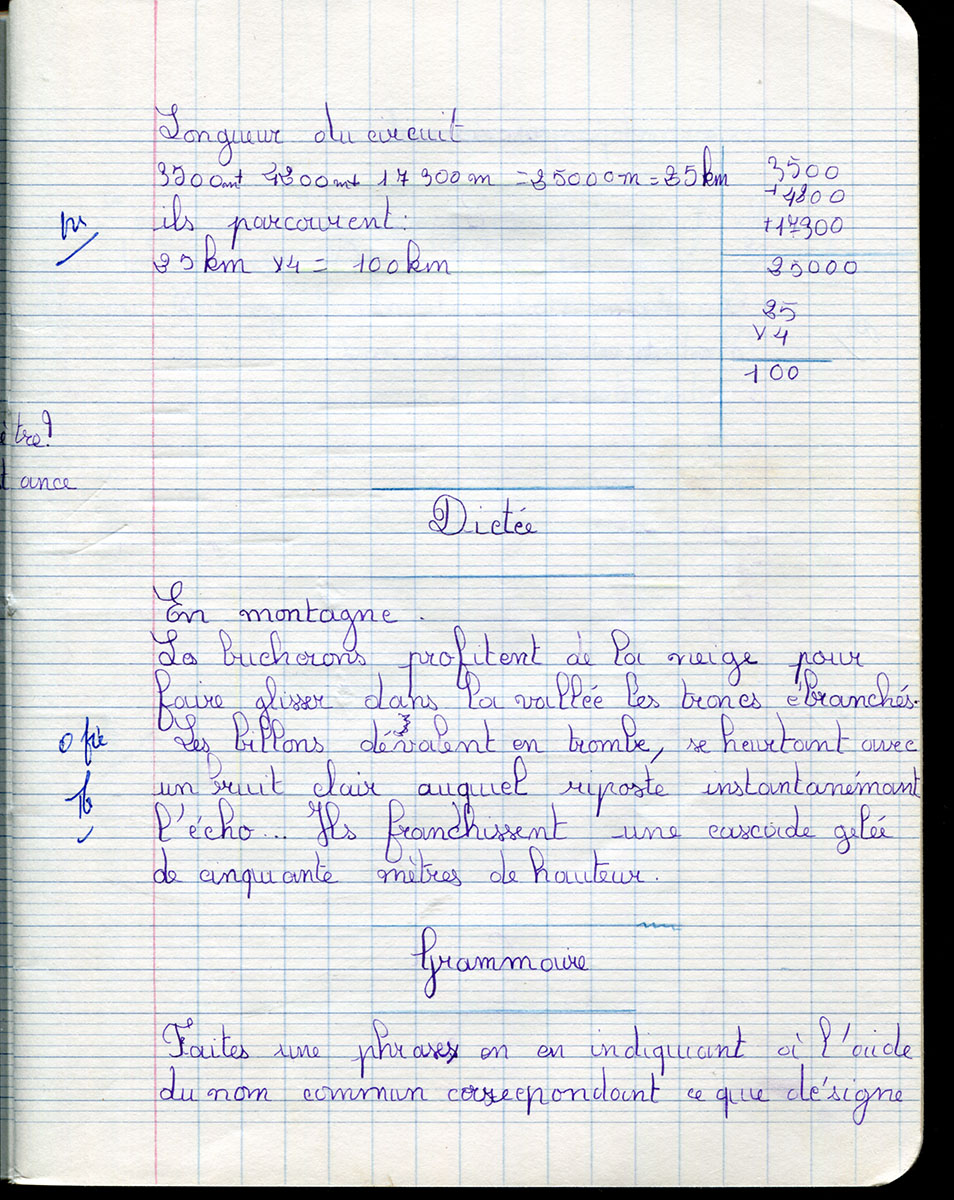 Longueur du circuit
3500m+ 4200m+ 17300m = 25000m = 25km
3500
+4200
+17300
25000
ils parcourent:
25km x4 = 100km
25
x 4
100
ètre?
t ance
Dictée
En montagne.
Les bucherons profitent de la neige pour
faire glisser dans la vallée les troncs ébranchés.
Les billons dévalent en trombe, se heurtant avec
un bruit clair auquel riposte instantanémant
l'écho... Ils franchissent une cascade gelée
de cinquante mètres de hauteur.
0 fte
Tb
Grammaire
Faites une phrases en en indiquant à l'aide
du nom commun correspondant ce que désigne